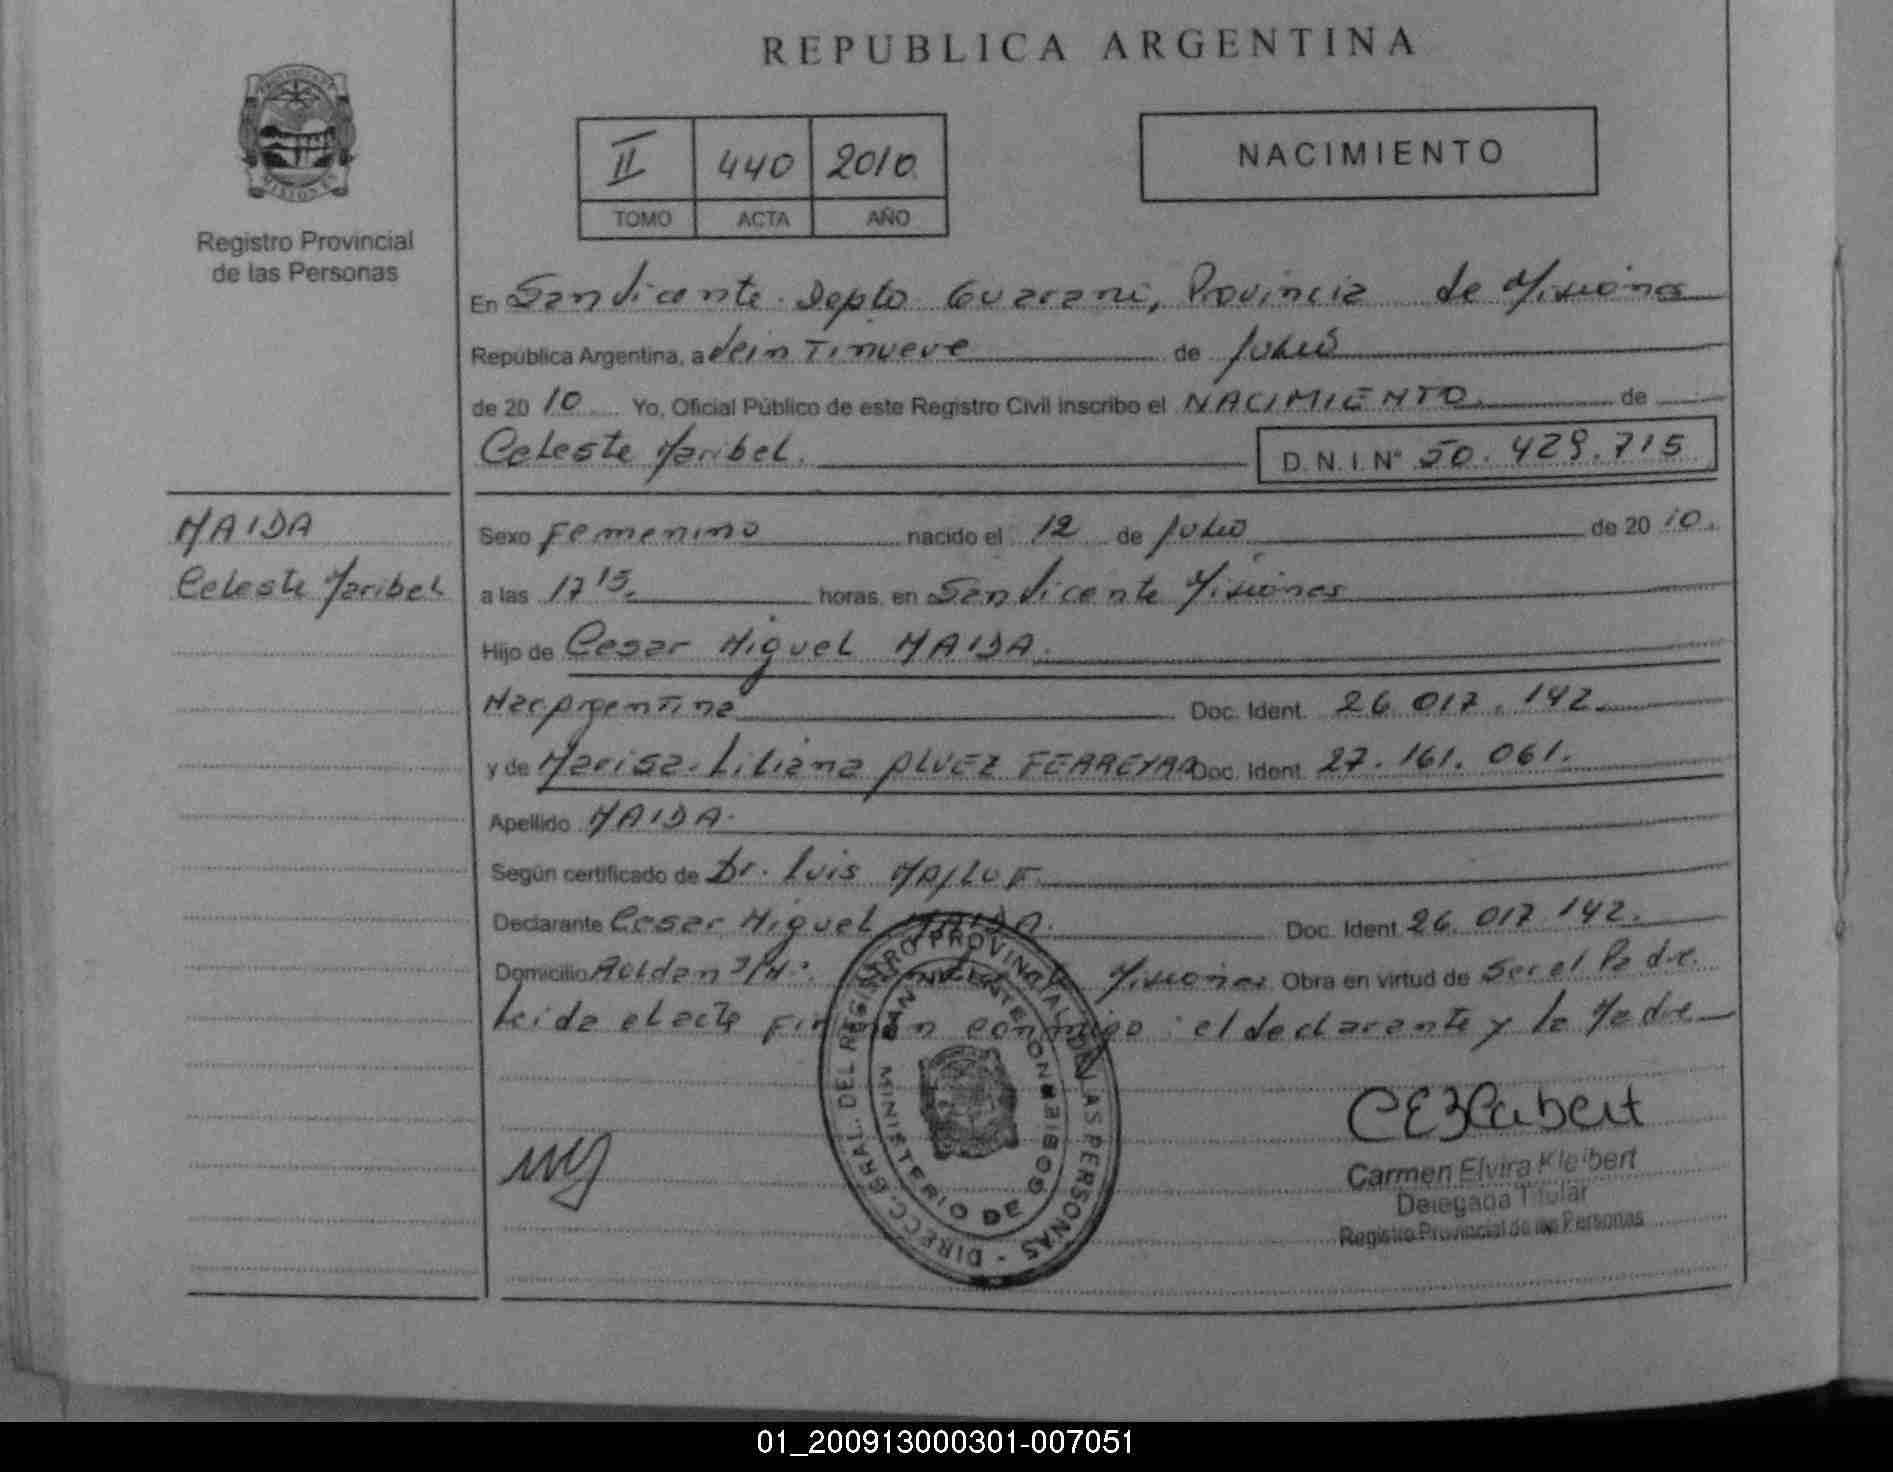 REPUBLICA ARGENTINA
PROVINCIA DE
MISIONES
Registro Provincial
de las Personas
II 440 2010
TOMO ACTA AÑO
NACIMIENTO
En San Vicente. Depto Guarani, Provincia de Misiones
República Argentina, a Veintinueve de Julio
de 20 10 Yo, Oficial Público de este Registro Civil inscribo el NACIMIENTO de
Celeste Maribel.
D.N.I. N° 50.429.715
MAIDA
Celeste Maribel
Sexo Femenino nacido el 12 de Julio de 20 10.
a las 17 15. horas, en San Vicente Misiones
Hijo de Cesar Miguel MAIDA.
Nac Argentina Doc. Ident. 26.017.142.
y de Marisa Liliana ALVEZ FERREYRA Doc. Ident. 27.161.061.
Apellido MAIDA.
Según certificado de Dr. Luis MAJLUF.
Declarante Cesar Miguel MAIDA. Doc. Ident. 26.017.142.
Domicilio Roldan S/N°. Misiones Obra en virtud de Ser el Padre.
Leida el acta firman conmigo: el declarante y la Madre
DIRECC. GRAL. DEL REGISTRO PROVINCIAL DE LAS PERSONAS -
SAN VICENTE
MINISTERIO DE GOBIERNO
Carmen Elvira Kleibert
Delegada Titular
Registro Provincial de las Personas
01_200913000301-007051